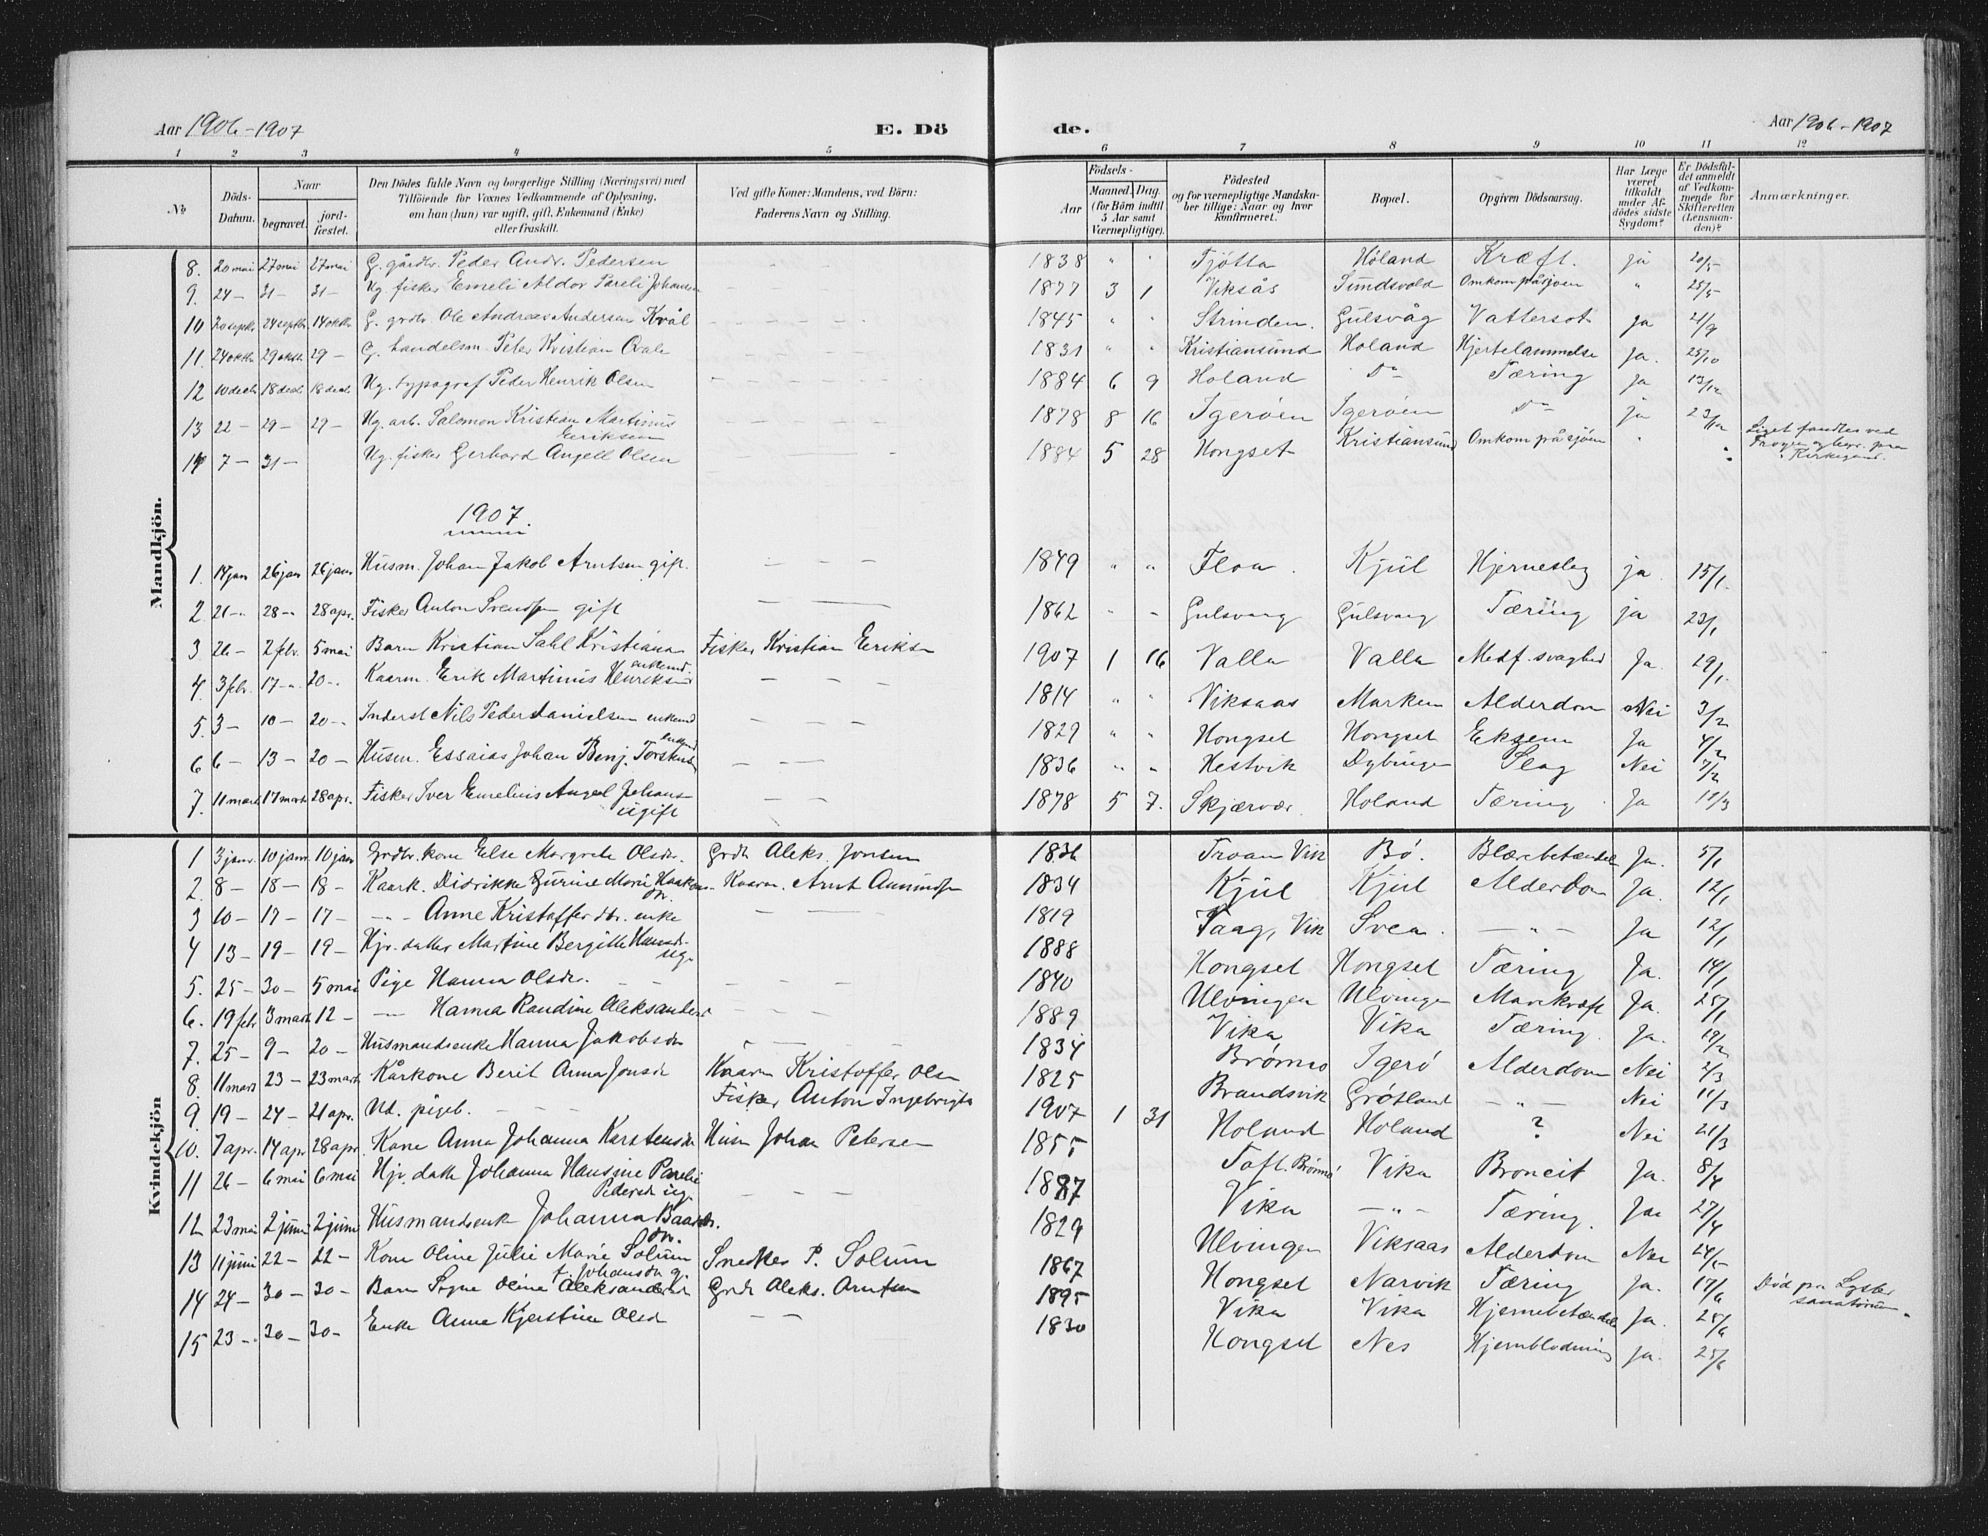 Aar 1906-1907 E. Dö
de. Aar 1906-1907
1 2 3 4 5
6 7 8 9 10 11 12
№ Döds-Datum. Naar begravet. jord-fæstet. Den Dödes fulde Navn og borgerlige Stilling (Næringsvei) med Tilföiende for Voxnes Vedkommende af Oplysning, om han (hun) var ugift, gift, Enkemand (Enke) eller fraskilt. Ved gifte Koner: Mandens, ved Börn: Faderens Navn og Stilling.
Födsels- Aar Maaned. Dag. (for Börn indtil 5 Aar samt Værnepligtige). Födested og for værnepligtige Mandskaber tillige: Naar og hvor Konfirmeret. Bopæl. Opgiven Dödsaarsag. Har Læge været tilkaldt under Afdödes sidste Sygdom? Er Dödsfaldet anmeldt af Vedkommende for Skifteretten (Lensmanden)? Anmærkninger.
Mandkjön.
8. 20 mai 27 mai 27 mai G. gårdbr. Peder Andr. Pedersen 1838 " " Tjötta Höland Kræft. ja 20/5
9. 24 - 31 - 31 - Ug. fisker Emeli Aldor Pareli Johansen 1877 3 1 Viksås Sundsvold Omkom på sjøen " 25/5
10 20 septb. 24 septb. 14 oktb. G. grdbr Ole Andreas Andersen Kvål 1845 " " Strinden. Gulsvåg Vattersot ja 21/9
11. 24 oktb. 29 oktb. 29 - G. handelsm. Peter Kristian Qvale 1831 " " Kristiansund Holand Hjertelammelse Ja. 25/10
12 10 decb. 18 decb. 18 decb. Ug. typograf Peder Henrik Olsen 1884 6 9 Holand Do Tæring ja 13/12
13 22 - 29 - 29 - Ug. arb. Salomon Kristian Martinus Eriksen 1878 8 16 Igerøen Igerøen Do ja 23/12
14 7 - 31 - Ug. fisker Gerhard Angell Olsen 1884 5 28 Hongset Kristiansund Omkom på sjöen " " Liget fandtes ved Kirkegaard.
1907.
1. 14 jan 26 jan 26 jan Husm. Johan Jakob Arntsen gift. 1849 " " Floa. Kjul Hjerneslag ja. 15/1.
2 21 - 28 - 28 apr. Fisker Anton Svends gift 1862 - - Gulsvaag Gulsvaag Tæring ja 23/1
3 26 - 2 febr. 5 mai Barn Kristian Sahl Kristians Fisker Kristian Eriks 1907 1 16 Valla Valla Medf. svaghed Ja. 29/1.
4. 3 febr. 17 - 20 - Kaarm. Erik Martinus Henriks enkemd 1814 " Viksaas Marken Alderdom Nei 3/2
5. 3 - 10 - 20 - Inderst Nils Peder Danielsen enkemd 1829 " " Hongset Hongset Eksem Ja 4/2
6 6 - 13 - 20 - Husm. Essaias Johan Benj. Torskils enkemd 1836 " " Hestvik Dybvigen Slag Nei 7/2
7. 11 mart 17 mart 28 apr. Fisker Iver Emelius Angel Johans ugift 1878 5 7. Skjærvær Holand Tæring Ja 12/3
Kvindekjön
1 3 janr. 10 janr 10 jan Grdbr. kone Else Margrete Olsdr. Grdb Aleks. Jonsen 1836 Troan Vik Bö. Blærebetændel Ja. 5/1
2. 8 - 18 - 18 - Kaark. Didrikke Gurine Marie Haakons dr. Kaarm. Arnt Amunds 1834 Kjul Kjul Alderdom Ja. 12/1
3 10 - 17 - 17 - -"- Anne Kristoffer dtr. enke 1819 Taag, Vik Svea. - " - Ja 12/1
4 13 - 19 - 19 - Hjv. datter Martine Bergitte Hansdr. ug. 1888 Hongset Hongset Tæring Ja. 14/1
5. 25 - 30 - 5 mai Pige Hanna Olsdr. 1840 Ulvingen Ulvingen Mavekræft Ja. 25/1
6. 19 febr 3 mart 12 - -"- Hanna Randine Aleksanders 1889 Vika Vika Tæring. Ja. 19/2
7. 25 - 9 - 20 - Husmandsenke Hanna Jakobsdr 1834 Brønnö Igerö Alderdom Nei 2/3
8. 11 mart 23 - 23 mart Kårkone Berit Anna Jonsdr Kaarm Kristoffer Olsen 1825 Brandsvik Grøtland - " - Nei 11/3
9. 19 - 24 - 21 apr. Ud. pigeb. Fisker Anton Ingebrigts 1907 1 31 Holand Holand ? Nei 21/3
10. 7 apr. 14 apr 28 apr Kone Anna Johanna Karstensdr Husm Johan Petersen 1855 Toft. Brønnö Vika Broncit Ja. 8/4
11 26 - 6 mai 6 mai Hjv. datter Johanna Hansine Parelie Pedersdr ug. 1887 Vika - " - Tæring. Ja. 27/4
12 23 mai 2 juni 2 juni Husmandsenk Johanna Baards dr. 1829 Ulvingen Viksaas Alderdom Nei 24/5
13 11 juni 22 - 22 - Kone Oline Julie Marie Solum f. Johansdr g. Snedker P. Solum 1867 Hongset Narvik Tæring Ja. 17/6 Död paa Lyster sanatorium.
14 24 - 30 - 30 - Barn Signe Oline Aleksanders Grdb Aleks. Arntsen 1895 Vika Vika Hjernebetændel Ja. 25/6
15 23 - 30 - 30 - Enke Anne Kjerstine Olsdr 1830 Hongset Nes Hjernblödning Ja. 25/6